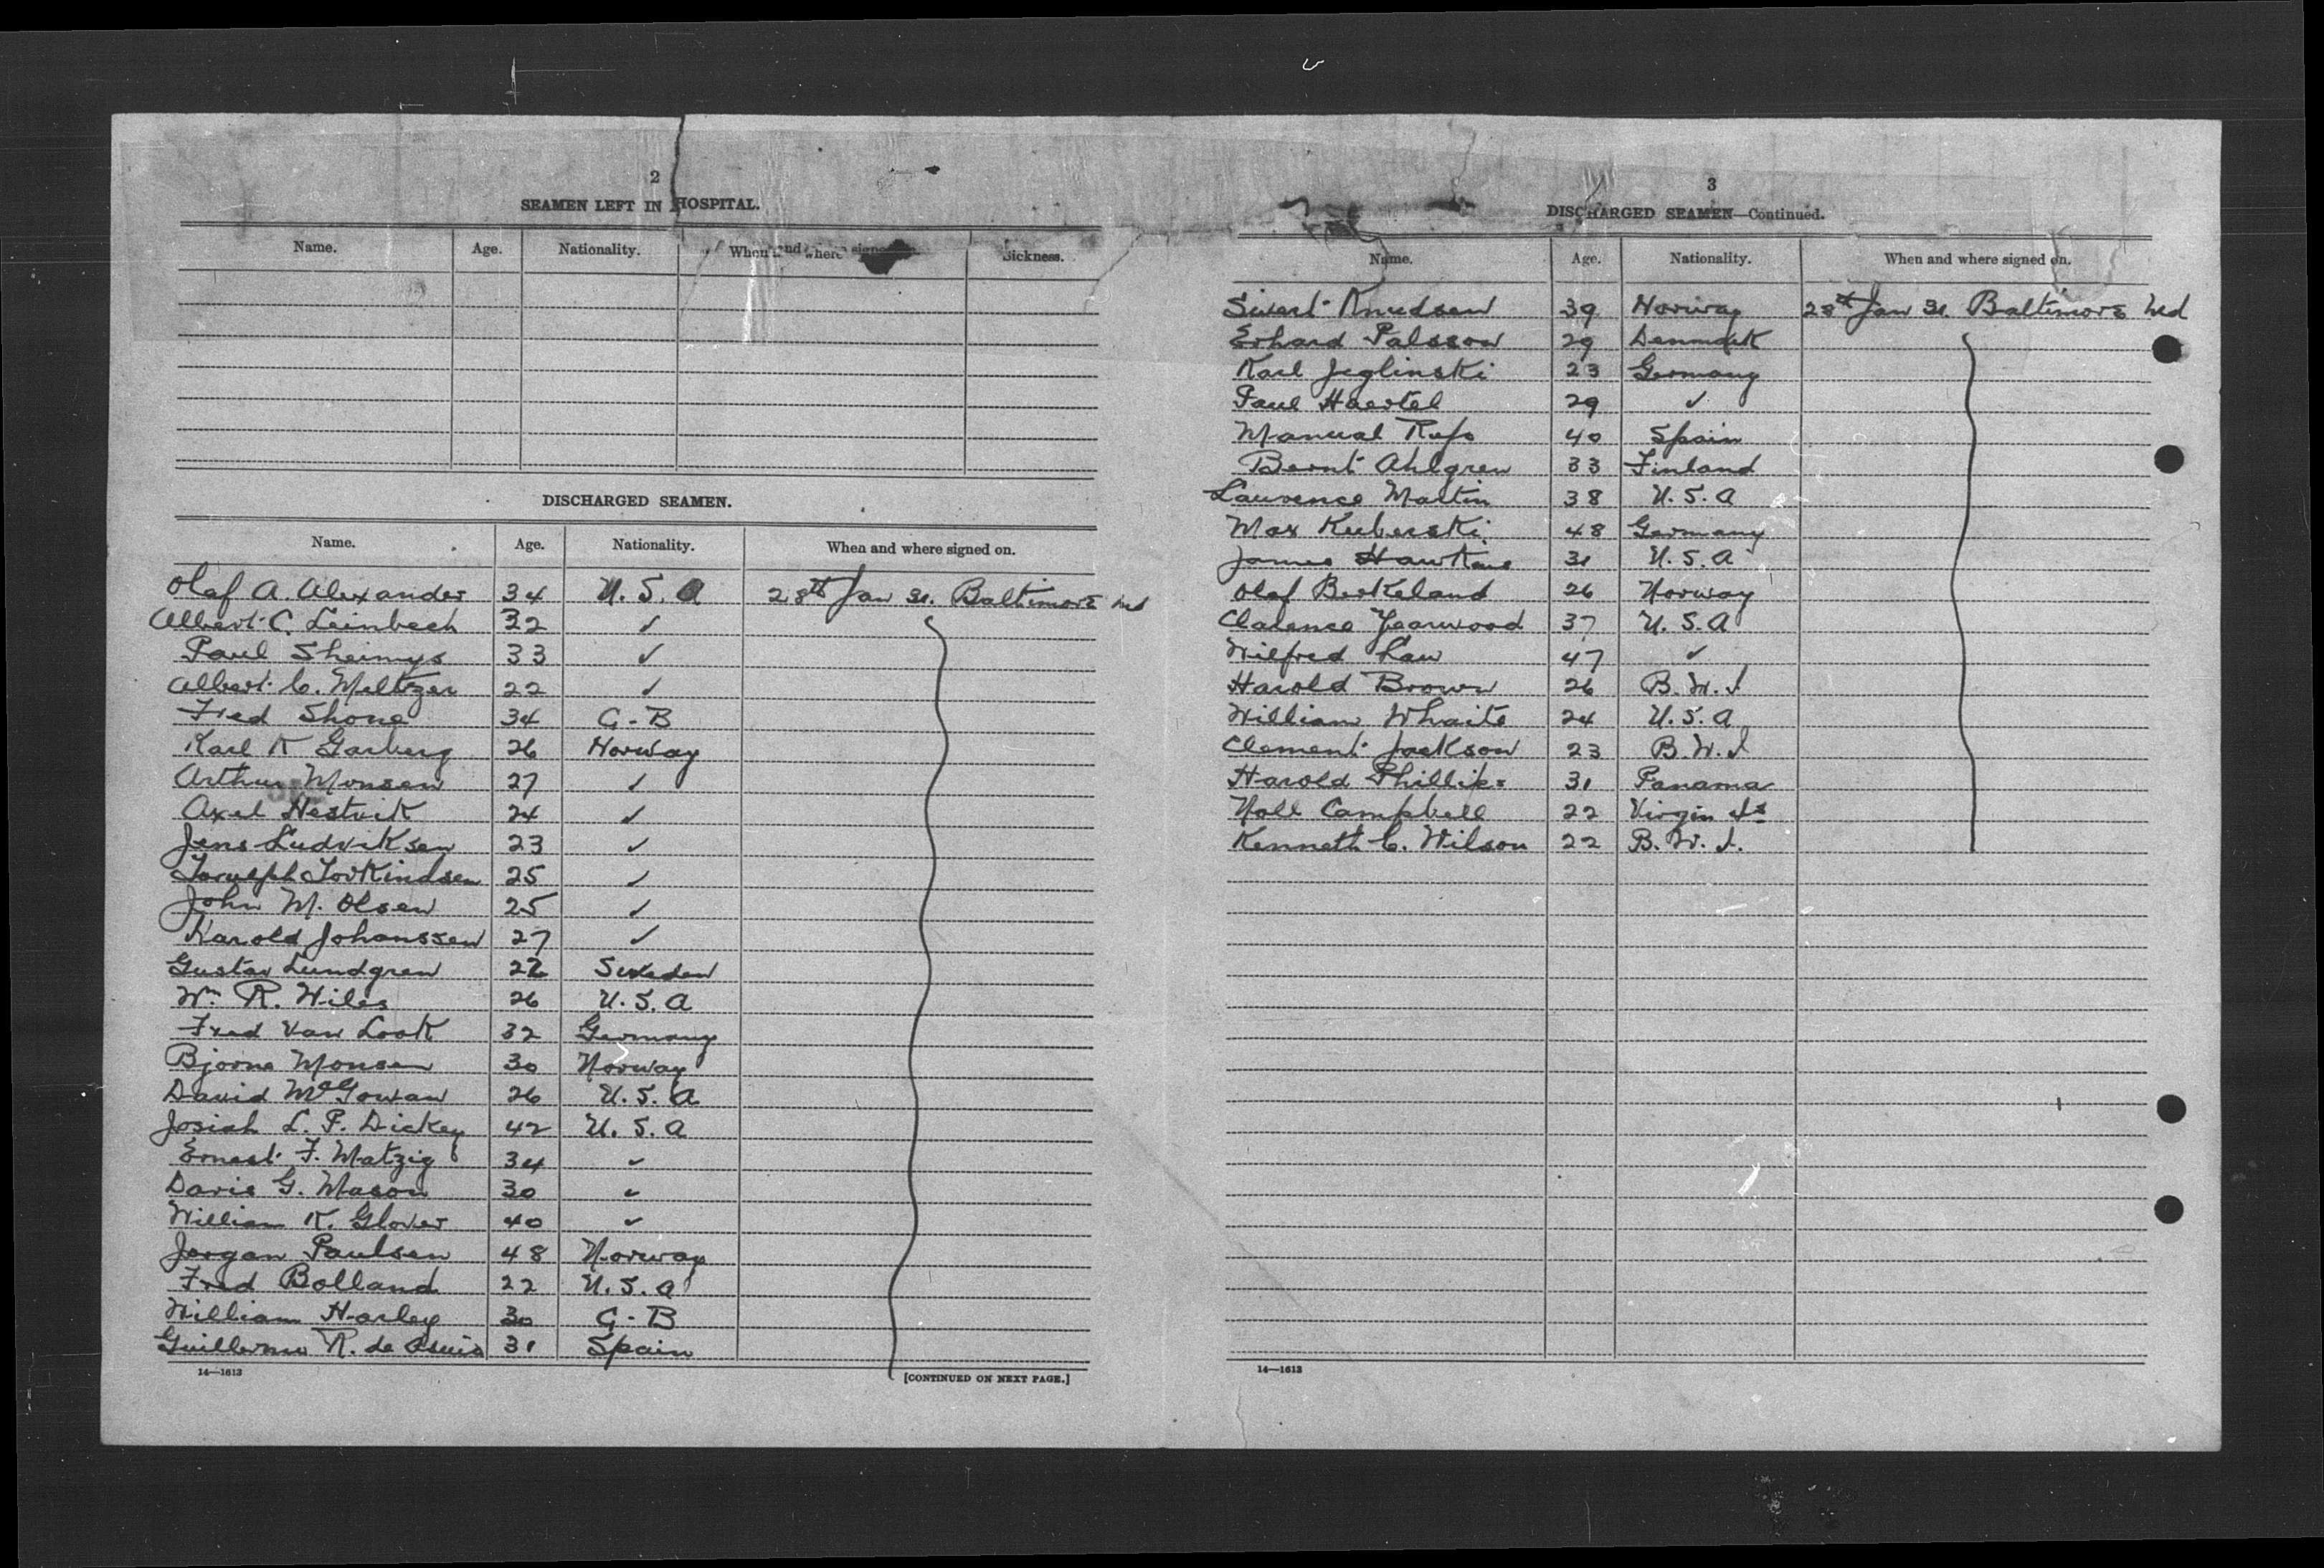 2
SEAMEN LEFT IN HOSPITAL.
Name. Age. Nationality. When and where signed on. Sickness.
DISCHARGED SEAMEN.
Name. Age. Nationality. When and where signed on.
Olaf A. Alexander 34 U.S.A 28th Jan 31. Baltimore Md
Albert C. Leinbech 32 ✓
Paul Sheimys 33 ✓
Albert C. Meltzer 22 ✓
Fred Shone 34 G-B
Karl K Garberg 26 Norway
Arthur Monsen 27 ✓
Axel Hestvik 24 ✓
Jens Ludviksen 23 ✓
Torkindsen 25 ✓
John M. Olsen 25 ✓
Harold Johanssen 27 ✓
Gustav Lundgren 22 Sweden
Wm R. Wiles 26 U.S.A
Fred Van Look 32 Germany
Bjorne Monsen 30 Norway
David McGowan 26 U.S.A
Josiah L. P. Dickey 42 U.S.A
Ernest F. Matzig 34 ✓
Davis G. Mason 30 ✓
William K. Glover 40 ✓
Jorgan Paulsen 48 Norway
Fred Bolland 22 U.S.A
William Harley 30 G-B
Guillermo R. de Asuis 31 Spain
14—1613
[CONTINUED ON NEXT PAGE.]
3
DISCHARGED SEAMEN—Continued.
Name. Age. Nationality. When and where signed on.
Sivert Knudsen 39 Norway 28th Jan 31. Baltimore Md
Erhard Palsson 29 Denmark
Karl Jeglinski 23 Germany
Paul Haertel 29 ✓
Manual Rufo 40 Spain
Bernt Ahlgren 33 Finland
Laurence Martin 38 U.S.A
Max Kuberski 48 Germany
James Hawkins 31 U.S.A
Olaf Berkeland 26 Norway
Clarence Yearwood 37 U.S.A
Wilfred Law 47 ✓
Harold Brown 26 B.W.I
William Whaite 24 U.S.A
Clement Jackson 23 B.W.I
Harold Phillips 31 Panama
Noll Campbell 22 Virgin Is
Kenneth C. Wilson 22 B.W.I.
14—1613